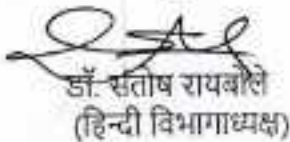 डॉ. संतोष रायबोले
(हिन्दी विभागाध्यक्ष)